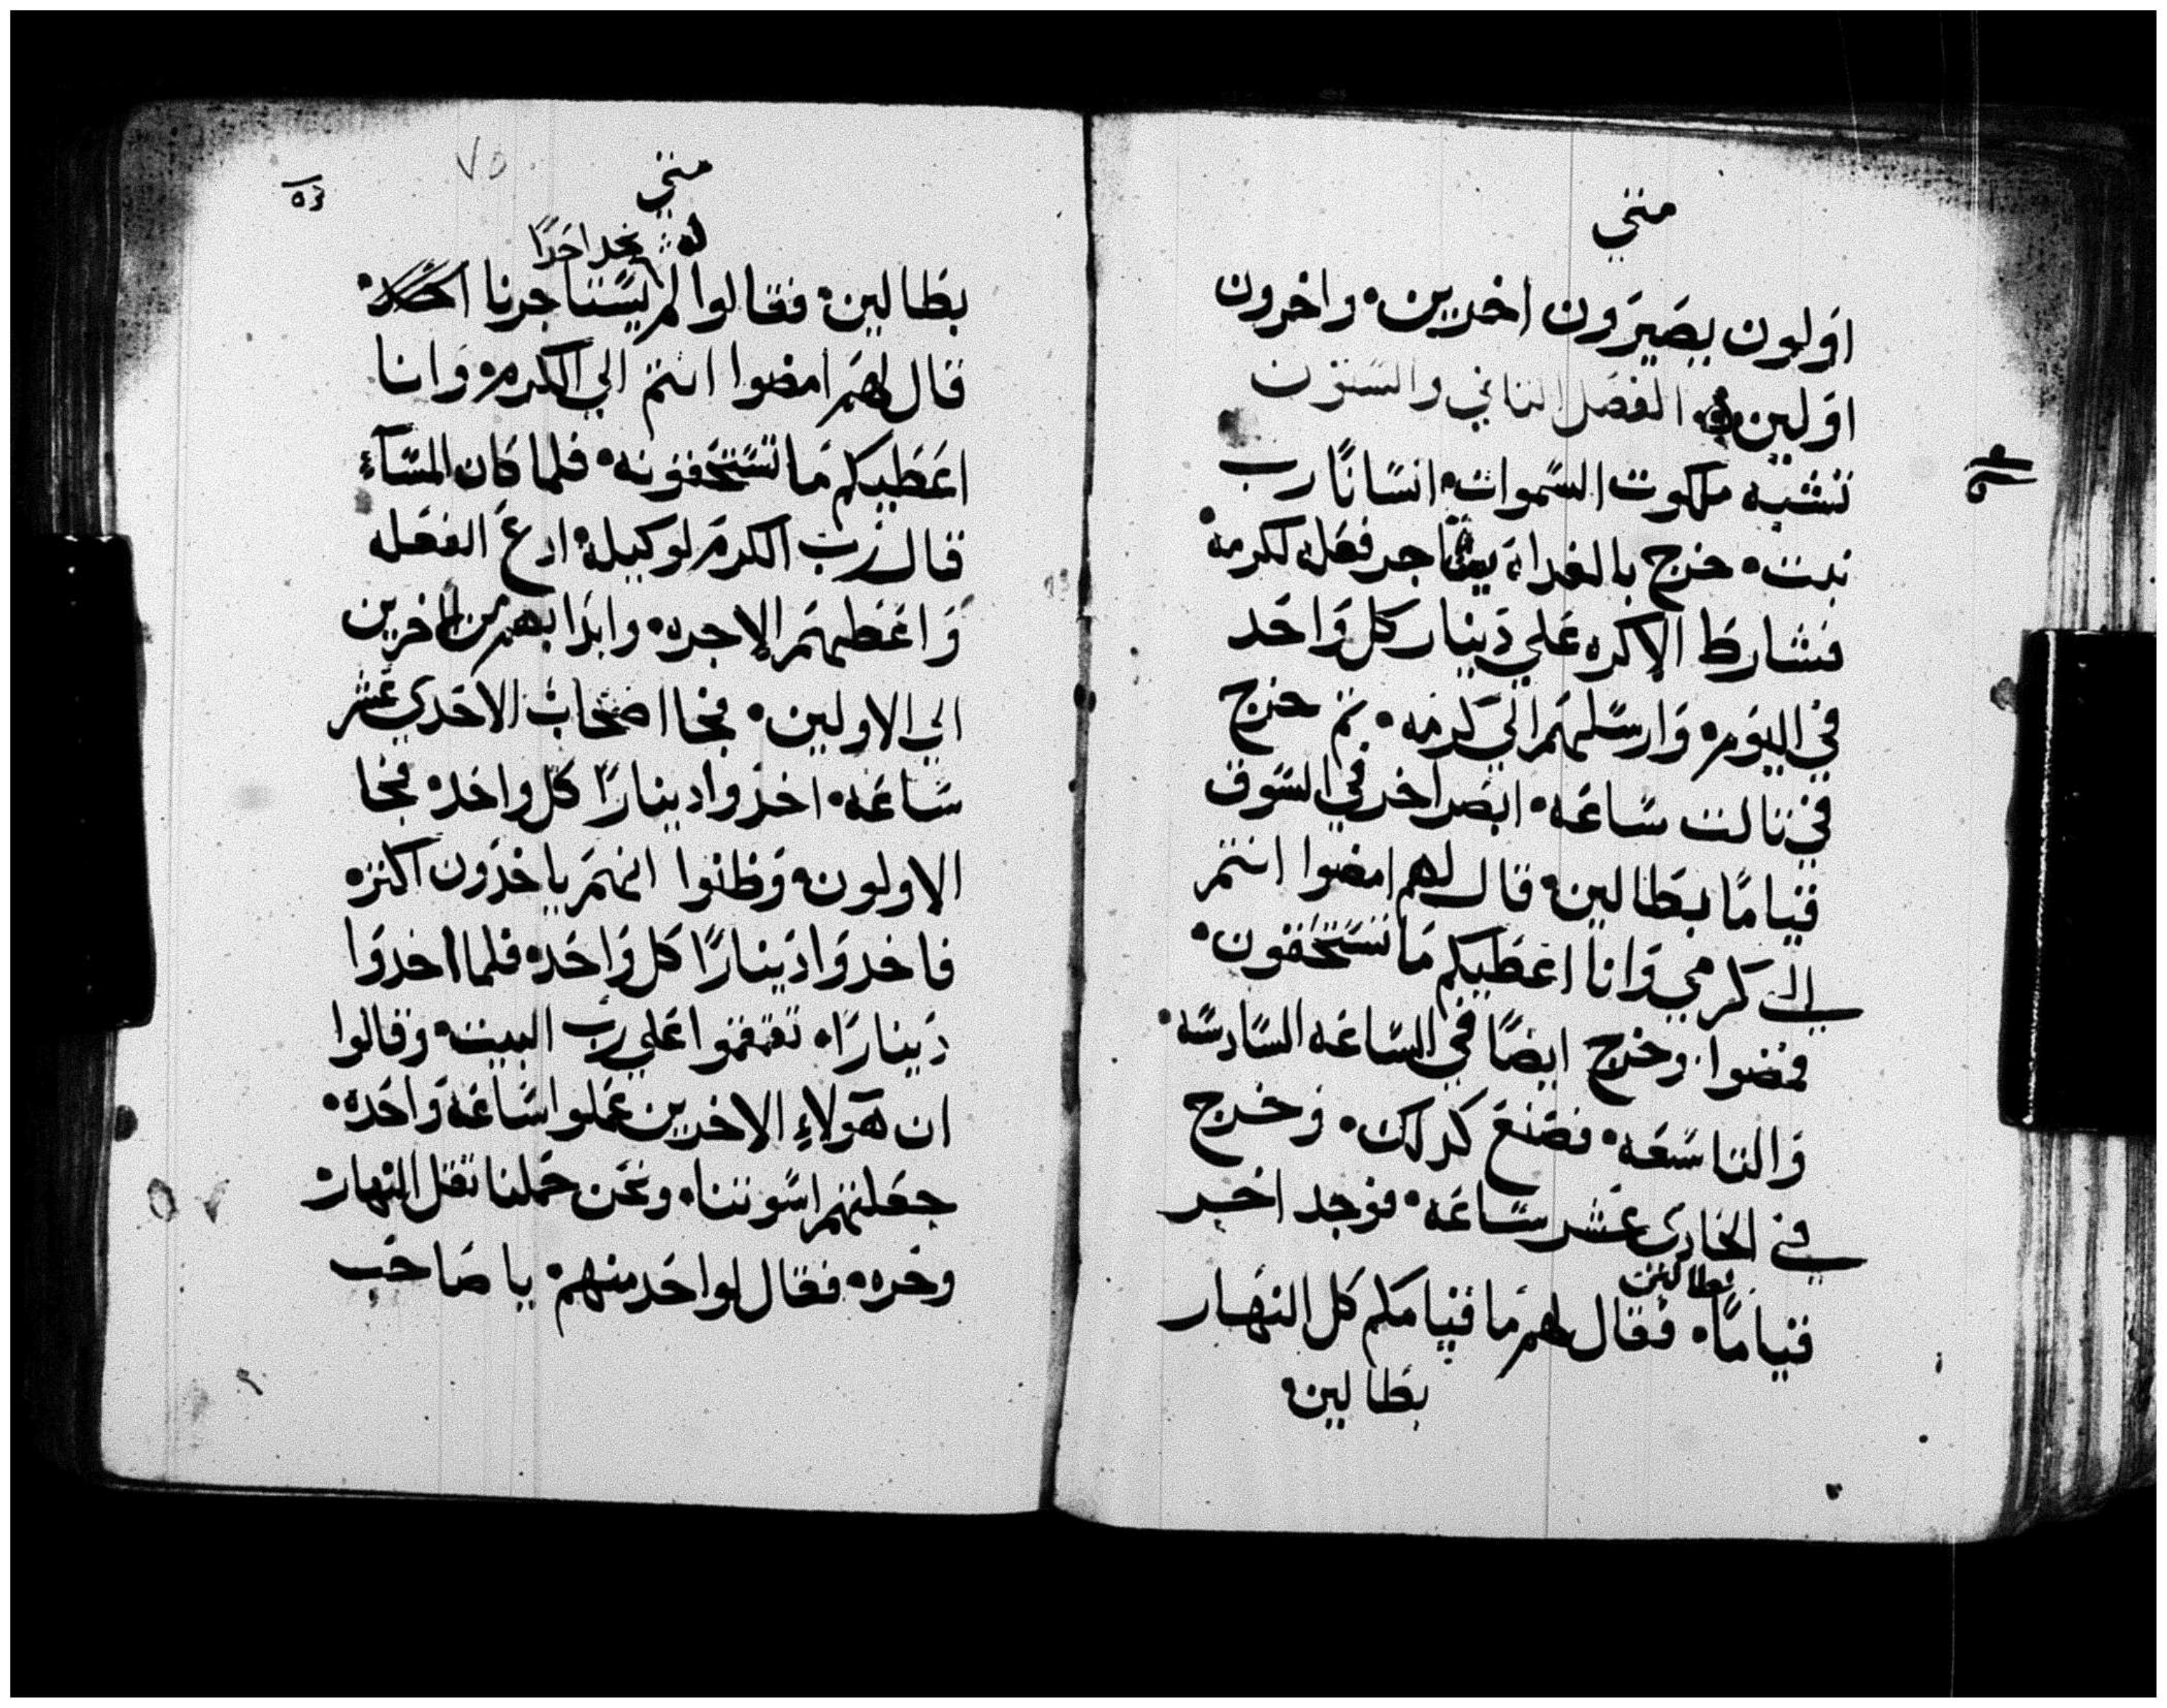 متي
اولون يصيرون اخرين٠ واخرون
اولين٠ الفصل الثاني والستون
تشبه ملكوت السموات٠ انسانًا رب
بيت٠ خرج بالغداة يستاجر فعله لكرمه٠
فشارط الاكره علي دينار كل واحد
في اليوم٠ وارسلهم الي كرمه٠ ثم خرج
في ثالث ساعه٠ ابصر اخر في السوق
قيامًا بطالين٠ قال لهم امضوا انتم
الي كرمي وانا اعطيكم ما تستحقون٠
فمضوا٠ وخرج ايضًا في الساعه السادسه٠
والتاسعه٠ فصنع كدلك٠ وخرج
في الحادي عشر ساعه٠ فوجد اخر
بطالين
قيامًا٠ فقال لهم ما قيامكم كل النهار
بطالين٠
متي
٧٥
له يجد احدًا
بطالين٠ فقالوا لم يستاجرنا احد٠
قال لهم امضوا انتم الي الكرم٠ وانا
اعطيكم ما تستحقونه٠ فلما كان المسآء
قال رب الكرم لوكيله٠ ادع الفعله
واعطهم الاجره٠ وابدا بهم من الاخرين
الي الاولين٠ فجا اصحاب الاحدي عشر
ساعه٠ اخذوا دينارًا كل واحد٠ فجا
الاولون٠ وظنوا انهم ياخذون اكثر٠
فاخدوا دينارًا كل واحد٠ فلما اخدوا
دينارًا٠ تقمقموا علي رب البيت٠ وقالوا
ان هولاء الاخرين عملوا ساعه واحده٠
جعلتهم اسوتنا٠ ونحن حملنا ثقل النهار
وحره٠ فقال لواحد منهم٠ يا صاحب